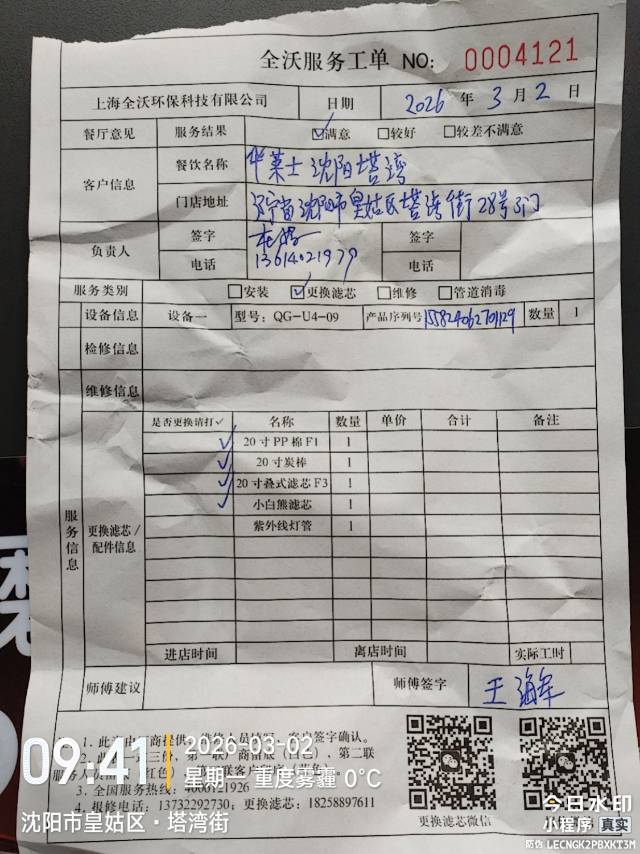 全沃服务工单 NO: 0004121
上海全沃环保科技有限公司 日期 2026 年 3 月 2 日
餐厅意见 服务结果 ☑满意 □较好 □较差不满意
客户信息 餐饮名称 华莱士沈阳塔湾
门店地址 辽宁省沈阳市皇姑区塔湾街28号3门
负责人 签字 签字
电话 13614021979 电话
服务类别 □安装 ☑更换滤芯 □维修 □管道消毒
设备信息 设备一 型号: QG-U4-09 产品序列号 数量 1
检修信息
维修信息
服务信息
更换滤芯/配件信息
是否更换请打✓ 名称 数量 单价 合计 备注
✓ 20寸PP棉F1 1
✓ 20寸炭棒 1
✓ 20寸叠式滤芯F3 1
✓ 小白熊滤芯 1
紫外线灯管 1
进店时间 离店时间 实际工时
师傅建议 师傅签字 王海军
3. 全国服务热线: 4006121926
4. 报修电话: 13732292730; 更换滤芯: 18258897611
更换滤芯微信
09:41
2026-03-02
星期一 重度雾霾 0°C
沈阳市皇姑区·塔湾街
今日水印
小程序 真实
防伪 LECNGK2PBXKT3M